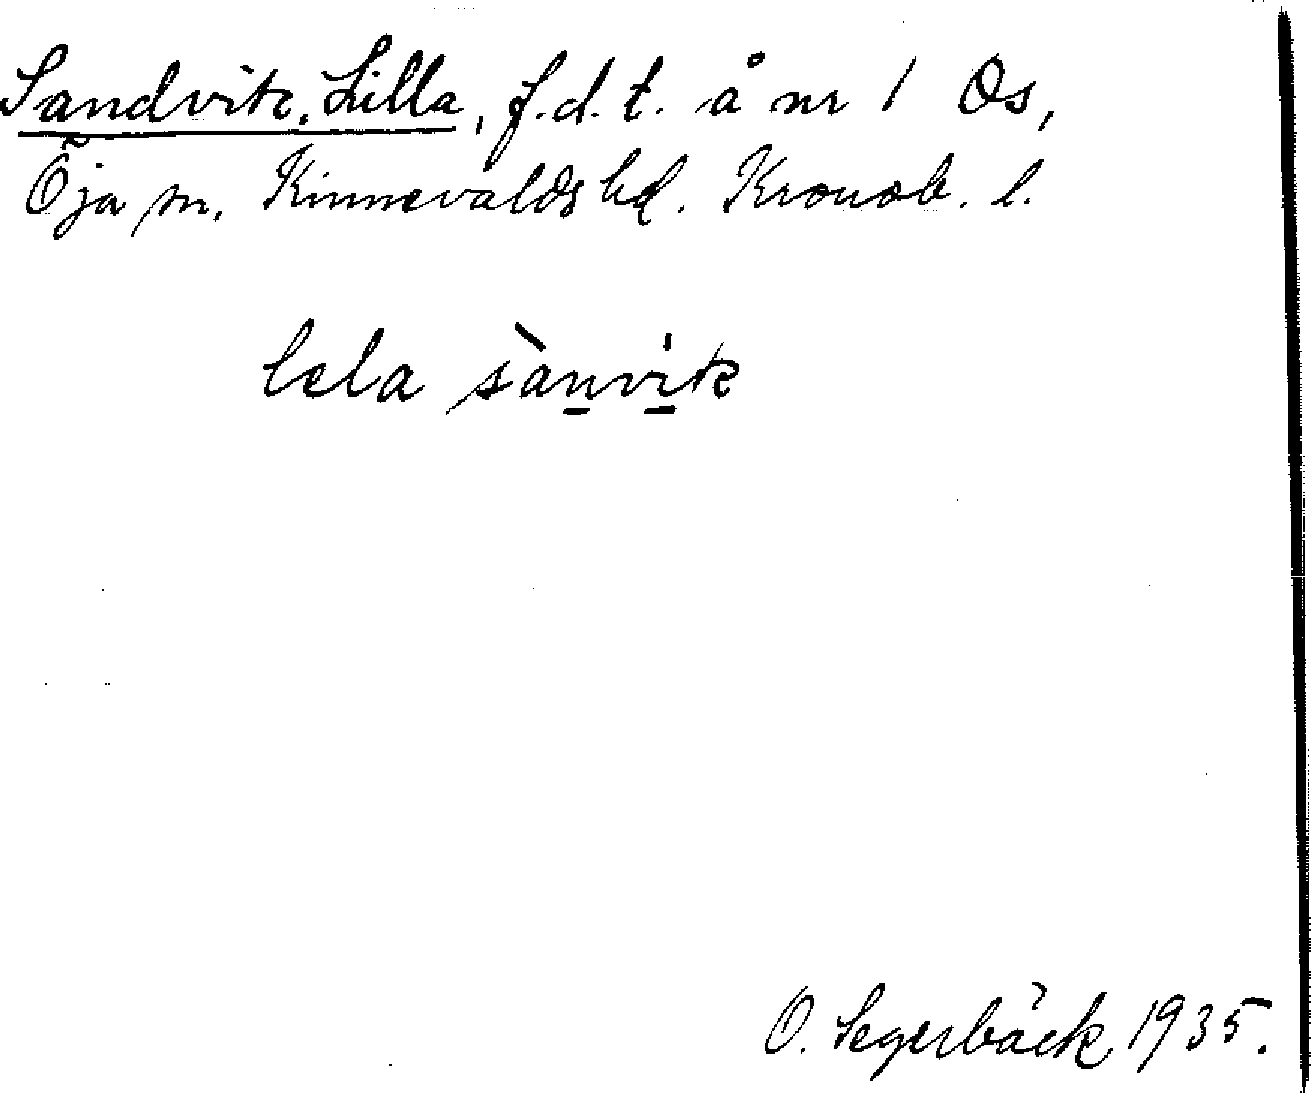 Sandvik, Lilla, f.d.t. å nr 1 Os,
Öja sn. Kinnevalds hd. Kronob. l.
lela sànvi̱k
O. Segerbäck 1935.